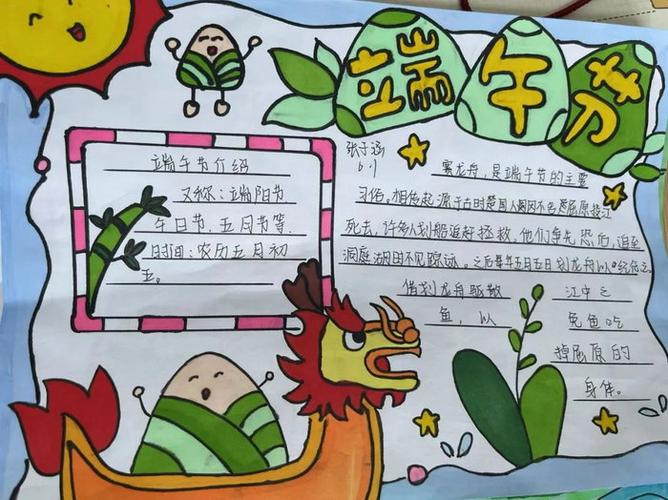 端午节
端午节介绍
又称：端阳节
午日节，五月节等.
时间：农历五月初
五。
张子涵
6.1
赛龙舟，是端午节的主要
习俗。相传起源于古时楚国人因不舍屈原投江
死去，许多人划船追赶拯救。他们争先恐后，追至
洞庭湖时不见踪迹。之后每年五月五日划龙舟以纪念之。
借划龙舟驱散 江中之
鱼，以 免鱼吃
掉屈原的
身体。